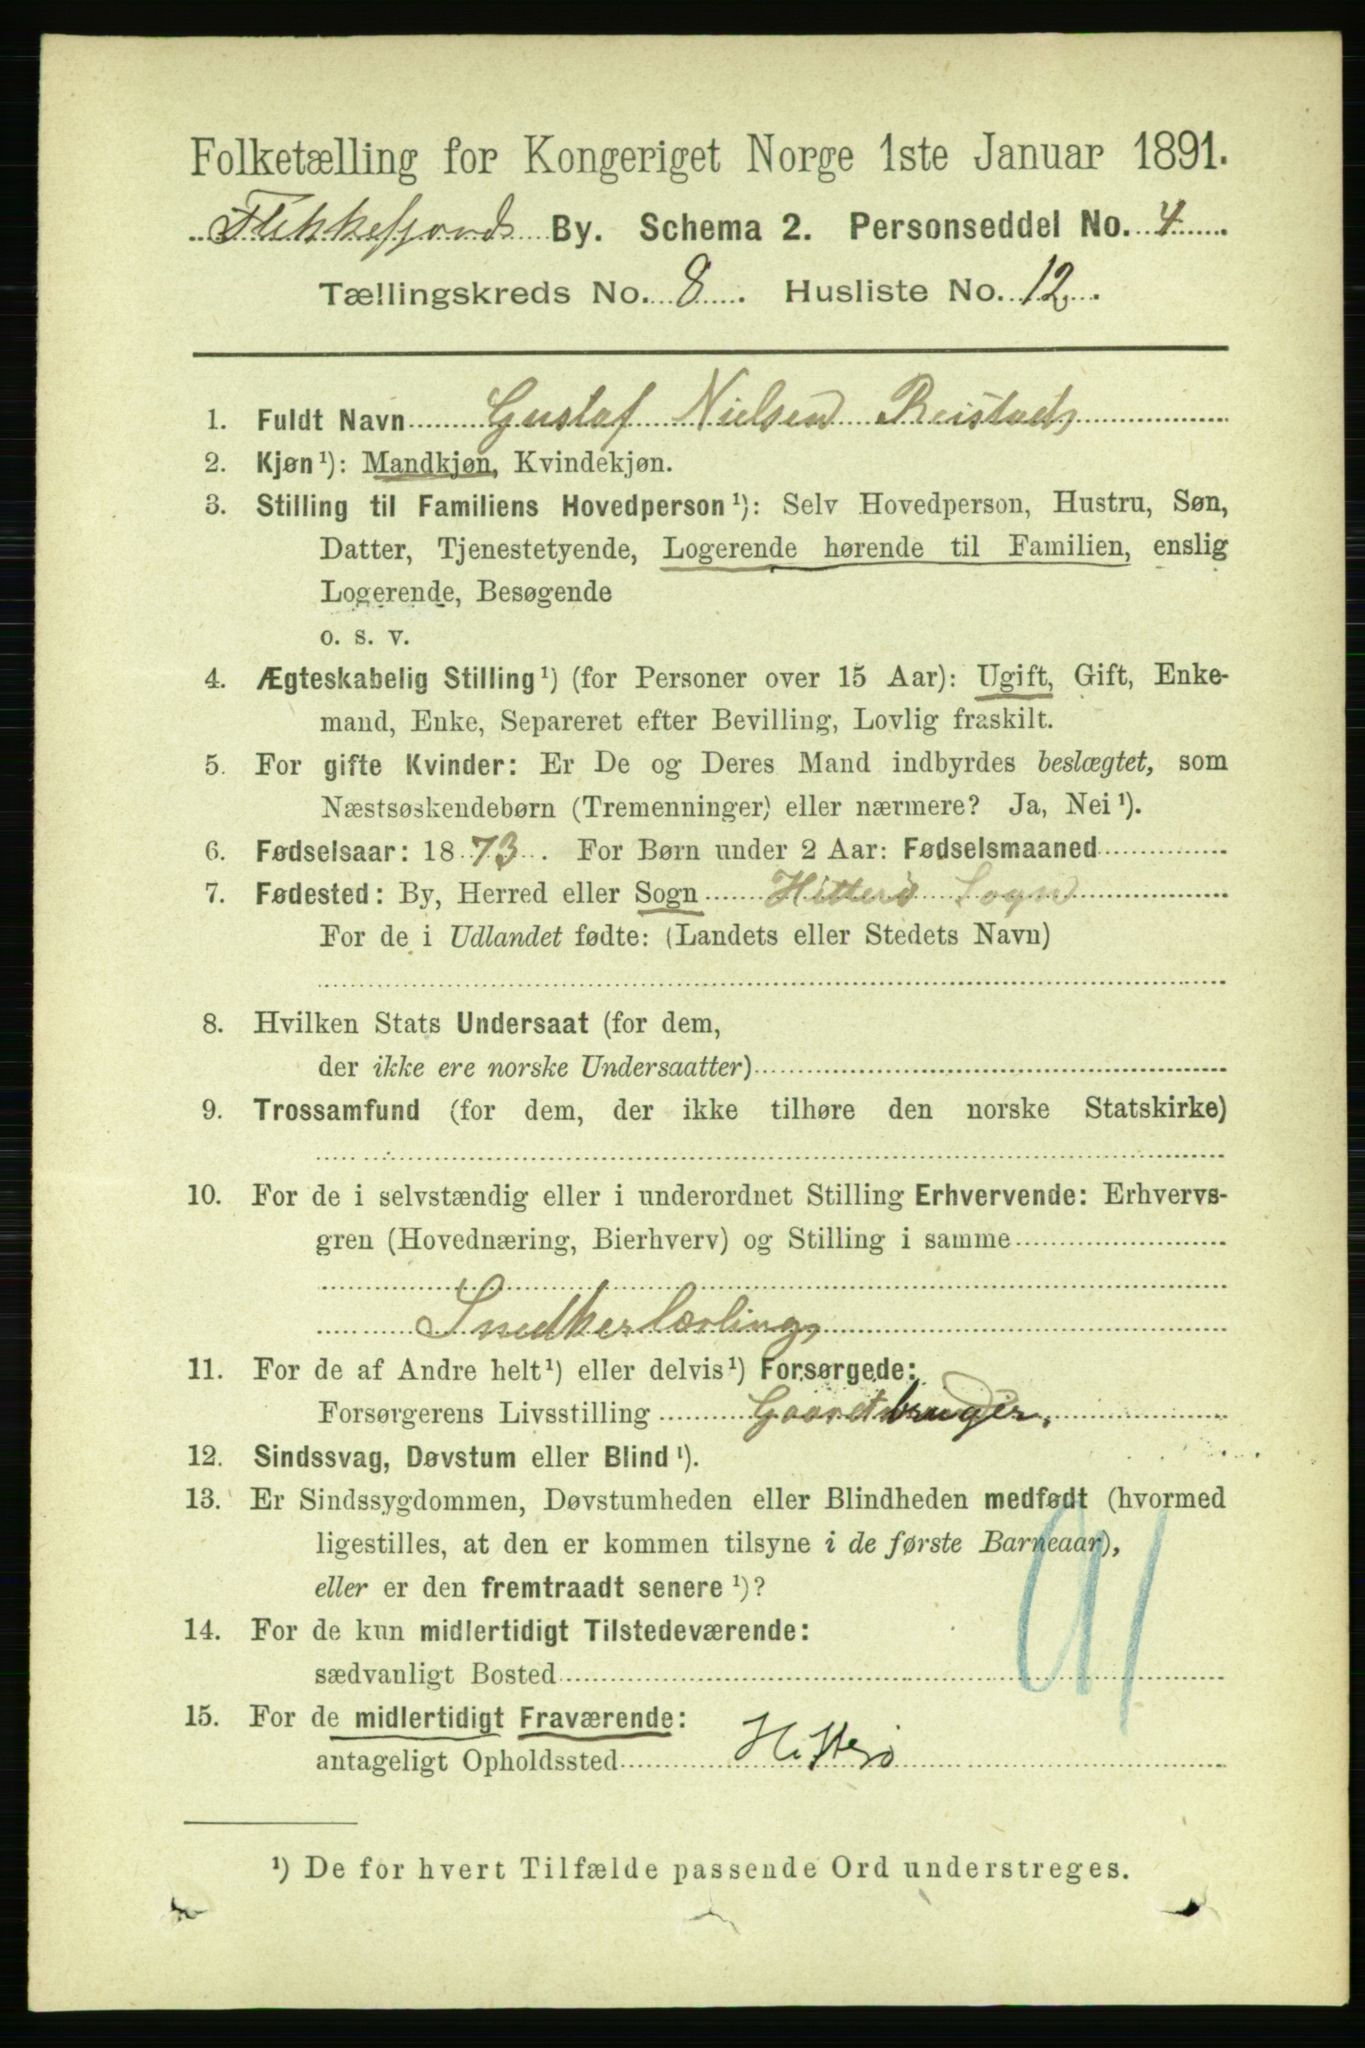 Folketælling for Kongeriget Norge 1ste Januar 1891.
Flekkefjords By. Schema 2. Personseddel No. 4
Tællingskreds No. 8. Husliste No. 12.
1. Fuldt Navn Gustaf Nielsen Reistad
2. Kjøn¹): Mandkjøn, Kvindekjøn.
3. Stilling til Familiens Hovedperson¹): Selv Hovedperson, Hustru, Søn,
Datter, Tjenestetyende, Logerende hørende til Familien, enslig
Logerende, Besøgende
o. s. v.
4. Ægteskabelig Stilling¹) (for Personer over 15 Aar): Ugift, Gift, Enke-
mand, Enke, Separeret efter Bevilling, Lovlig fraskilt.
5. For gifte Kvinder: Er De og Deres Mand indbyrdes beslægtet, som
Næstsøskendebørn (Tremenninger) eller nærmere? Ja, Nei¹).
6. Fødselsaar: 1873. For Børn under 2 Aar: Fødselsmaaned
7. Fødested: By, Herred eller Sogn Hitterø Sogn
For de i Udlandet fødte: (Landets eller Stedets Navn)
8. Hvilken Stats Undersaat (for dem,
der ikke ere norske Undersaatter)
9. Trossamfund (for dem, der ikke tilhøre den norske Statskirke)
10. For de i selvstændig eller i underordnet Stilling Erhvervende: Erhvervs-
gren (Hovednæring, Bierhverv) og Stilling i samme
Snedkerlærling
11. For de af Andre helt¹) eller delvis¹) Forsørgede:
Forsørgerens Livsstilling Gaardbruger.
12. Sindssvag, Døvstum eller Blind¹).
13. Er Sindssygdommen, Døvstumheden eller Blindheden medfødt (hvormed
ligestilles, at den er kommen tilsyne i de første Barneaar),
eller er den fremtraadt senere¹)?
91
14. For de kun midlertidigt Tilstedeværende:
sædvanligt Bosted
15. For de midlertidigt Fraværende:
antageligt Opholdssted Hitterø
¹) De for hvert Tilfælde passende Ord understreges.